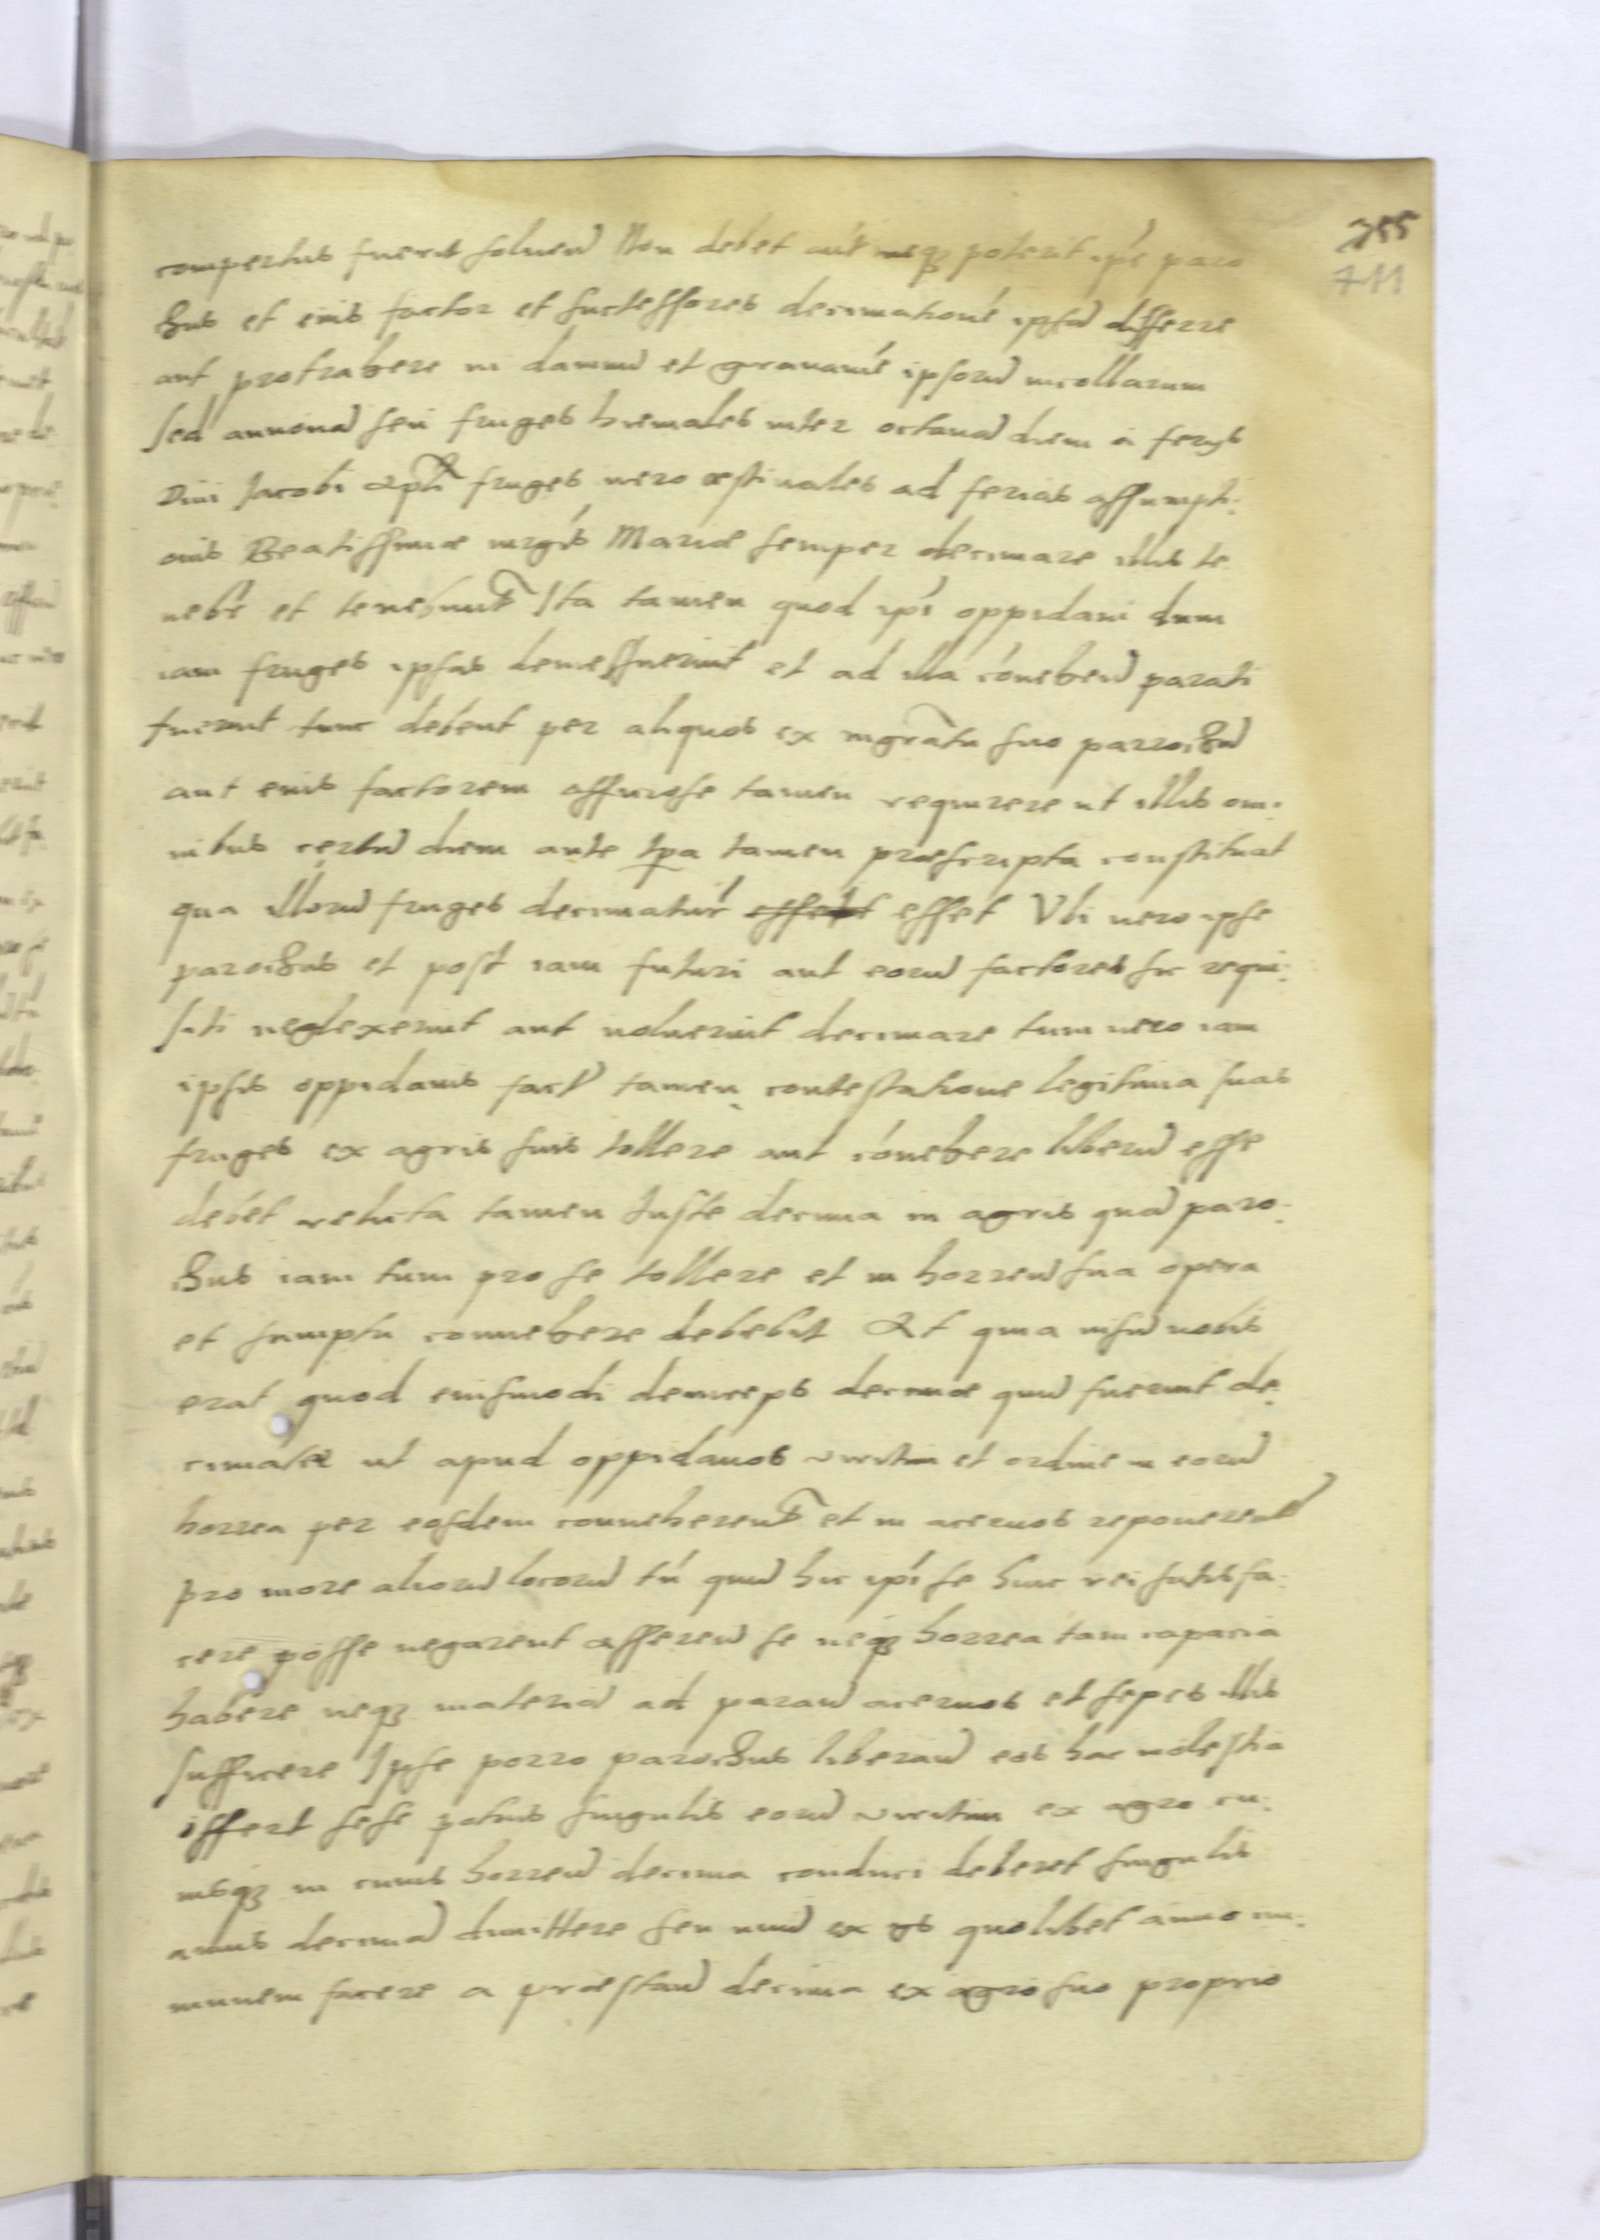 355
711
compertus fuerit soluend Non debet aut neqz poterit ipse paro
chus et eius factor et successores decimatione ipsa differre
aut protrahere in damnu et grauame ipsoru incollarum
sed annona seu fruges hiemales inter octaua diem a ferijs
Diui Jacobi apli fruges uero æstiuales ad ferias assumpti:
onis Beatissimæ uirgis Mariæ semper decimare illis te
neb et tenebunt Ita tamen quod ipi oppidani dum
iam fruges ipsas demessuerint et ad illa conuehend parati
fuerint tunc debent per aliquos ex mgratu suo parochu
aut eius factorem officiose tamen requirere ut illis om:
nibus certu diem ante tpa tamen præscripta constituat
qua illoru fruges decimatur esset Vbi uero ipse
parochus et post iam futuri aut eoru factores sic requi:
siti neglexerint aut noluerint decimare tum uero iam
ipsis oppidanis fact tamen contestatione legitima suas
fruges ex agris suis tollere aut conuehere liberu esse
debet relicta tamen Iuste decima in agris qua paro:
chus iam tum pro se tollere et in horreu sua opera
et sumptu conuehere debebit At quia uisu nobis
erat quod eiusmodi deinceps decimæ quu fuerint de:
cimatæ ut apud oppidanos uiritim et ordine in eoru
horrea per eosdem conueherent et in aceruos reponerent
pro more alioru locoru tn quu hic ipi se huic rei satisfa:
cere posse negarent asserend se neqz horrea tam capacia
habere neqz materia ad parand aceruos et sepes illis
sufficere Ipse porro parochus liberand eos hac molestia
offert sese potius singulis eoru uiritim ex agro cu:
iusqz in cuius horreu decima conduci deberet singulis
annis decima dimittere seu unu ex ijs quolibet anno im:
munem facere a præstand decima ex agro suo proprio